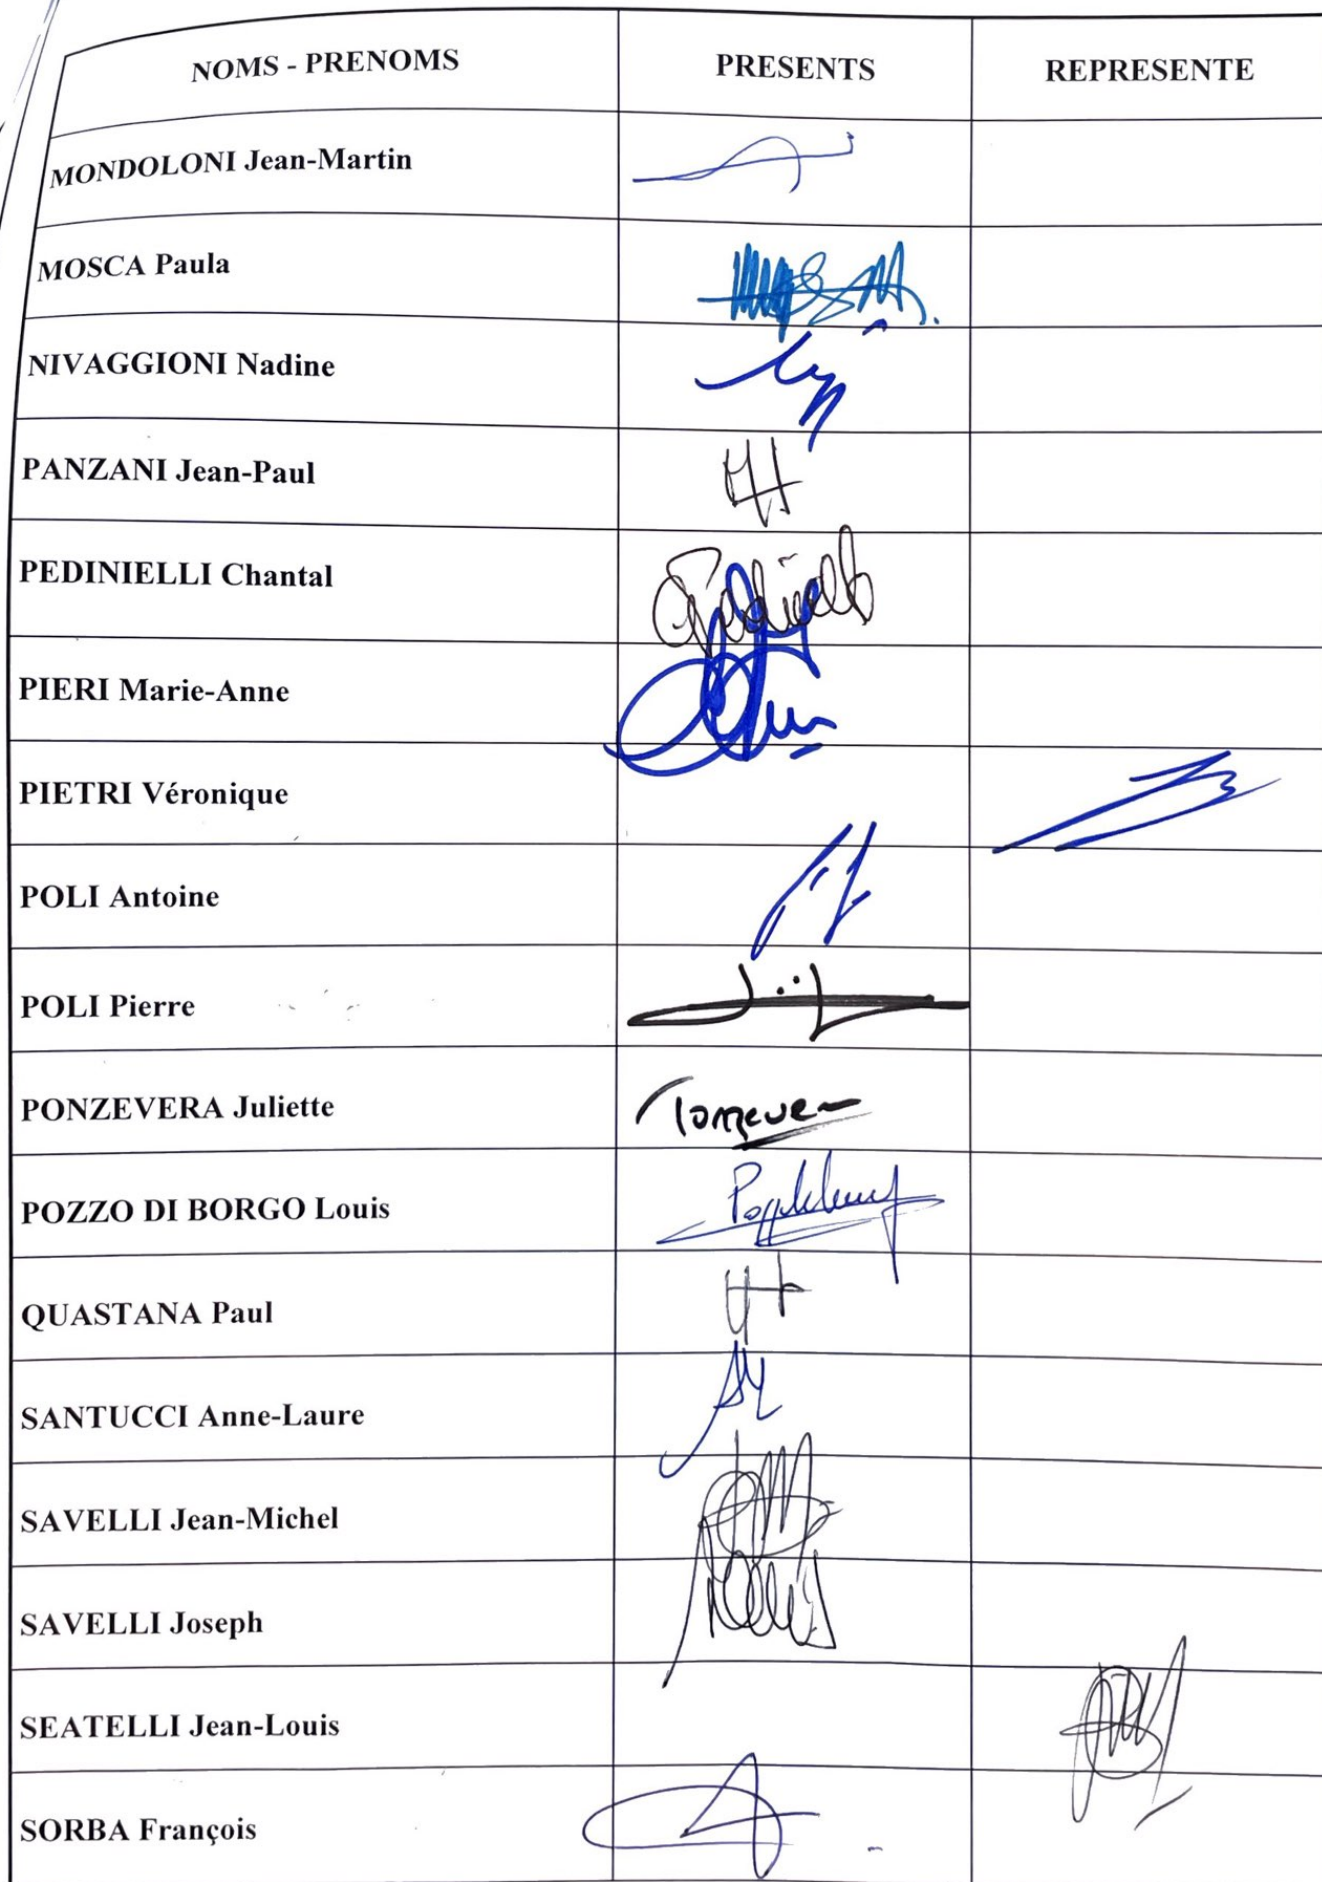 NOMS - PRENOMS PRESENTS REPRESENTE
MONDOLONI Jean-Martin
MOSCA Paula
NIVAGGIONI Nadine
PANZANI Jean-Paul
PEDINIELLI Chantal
PIERI Marie-Anne
PIETRI Véronique
POLI Antoine
POLI Pierre
PONZEVERA Juliette
POZZO DI BORGO Louis
QUASTANA Paul
SANTUCCI Anne-Laure
SAVELLI Jean-Michel
SAVELLI Joseph
SEATELLI Jean-Louis
SORBA François